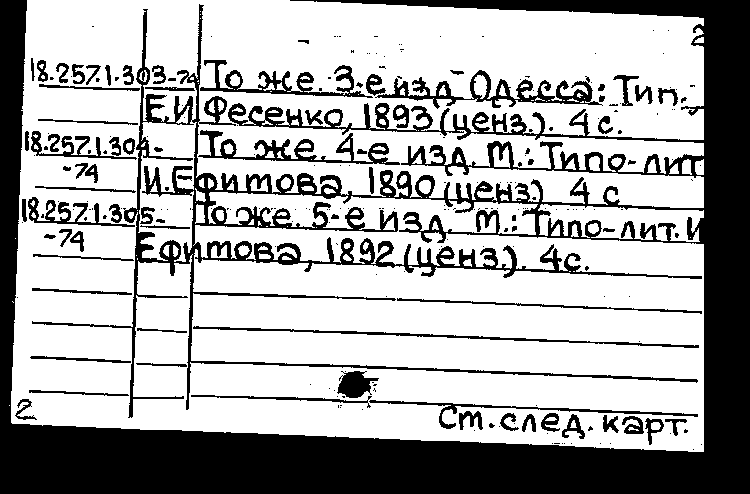 2
18.257.1.303-74 То же. 3-е изд. Одесса: Тип.
Е.И. Фесенко, 1893 (ценз.). 4 с.
18.257.1.304- То же. 4-е изд. М.: Типо-лит
-74 И.Ефитова, 1890 (ценз.) 4 с
18.257.1.305- То же. 5-е изд. М.: Типо-лит. И
-74 Ефитова, 1892 (ценз.). 4с.
2 См. след. карт.